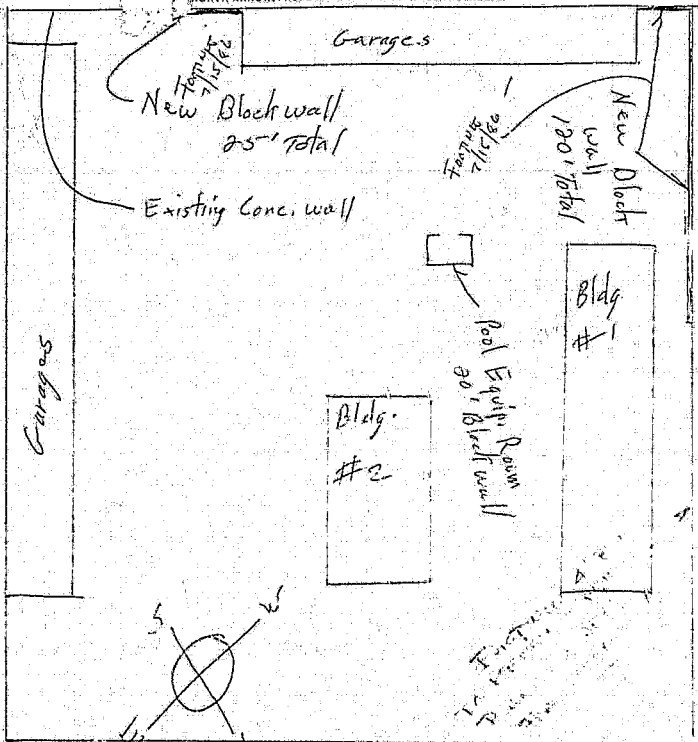 Garages
Footings
7/15/86
New Block wall
25' Total
Existing Conc. wall
Footings
7/15/86
New Block
wall
120' Total
Garages
Pool Equip. Room
20' Block wall
Bldg
#1
Bldg.
#2
S
W
E